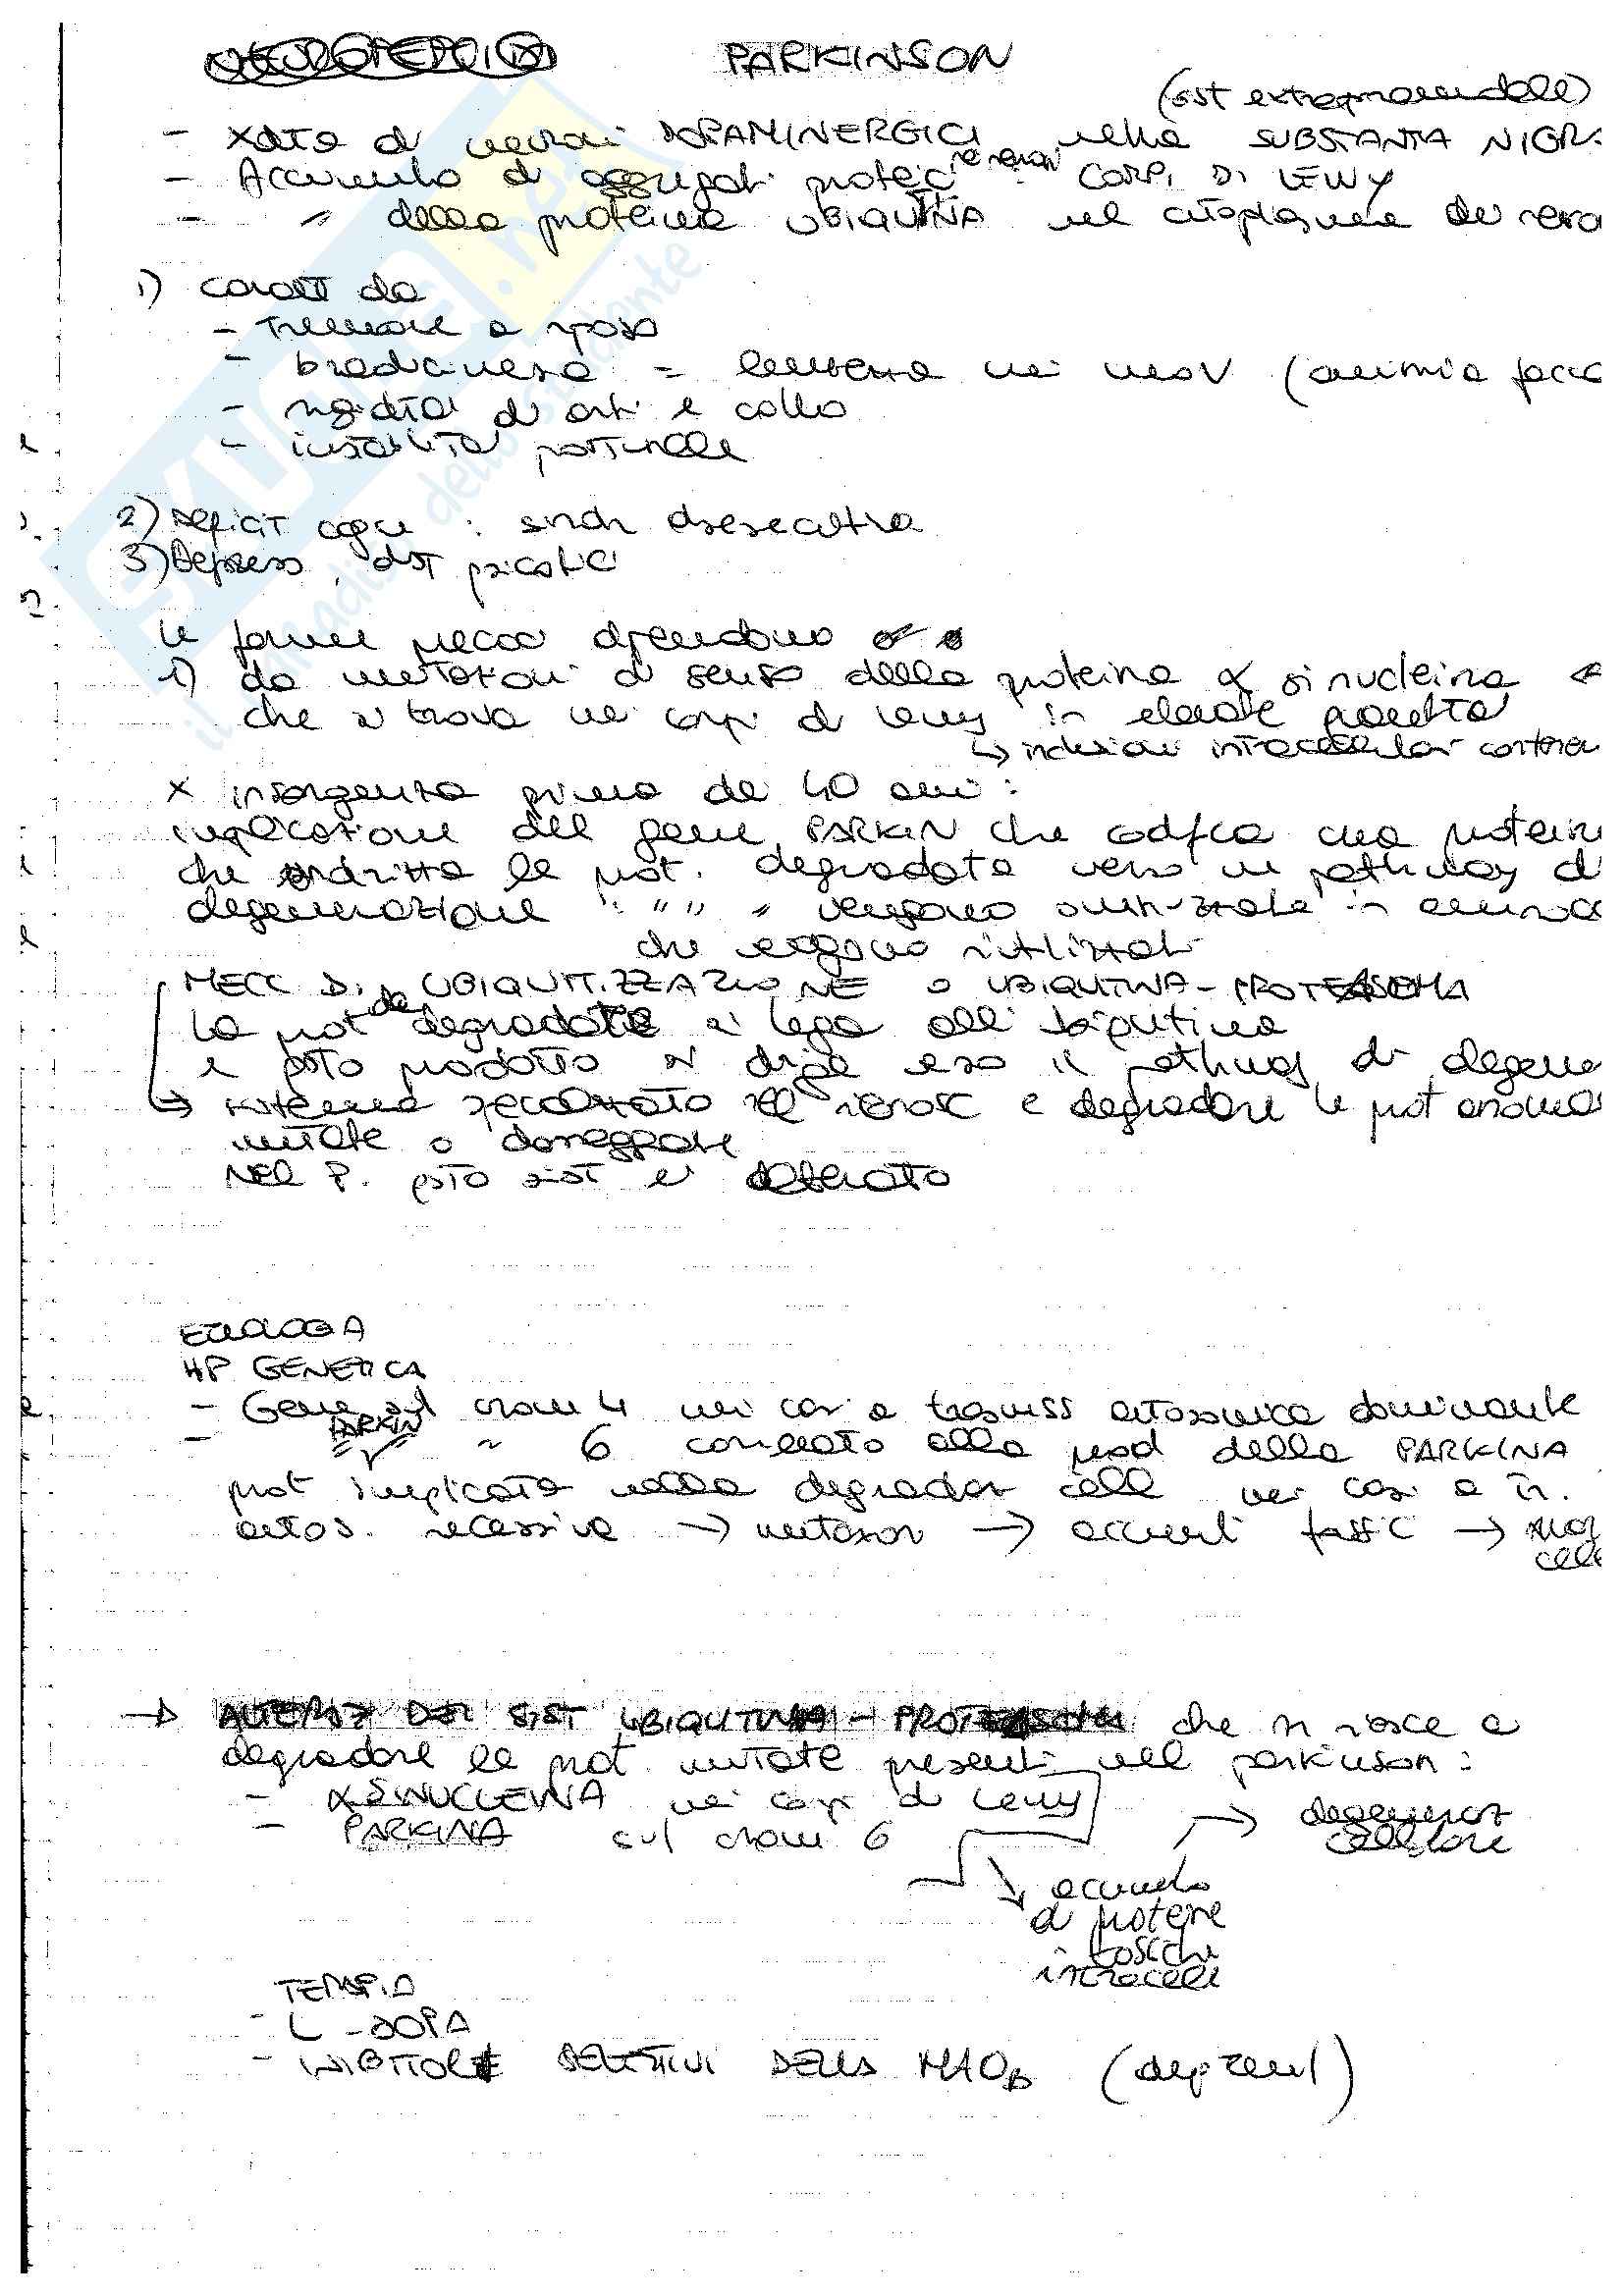 PARKINSON
(sist extrapiramidale)
- xdita di neuroni DOPAMINERGICI nella SUBSTANTIA NIGR
- Accumulo di aggregati proteici nei neuroni : CORPI DI LEWY
- " della proteina UBIQUITINA nel citoplasma dei neuro
1) caratt da
- Tremore a riposo
- bradicinesia = lentezza nei mov (amimia facc
- rigidità di arti e collo
- instabilità posturale
2) Deficit cogn : sindr disesecutiva
3) Depress, dist psicotici
le forme precoci dipendono
1) da mutazioni di senso della proteina α sinucleina
che si trova nei corpi di Lewy in elevate quantità
↳ inclusioni intracellular
x insorgenza prima dei 40 anni :
implicazione del gene PARKIN che codifica una protein
che indirizza le prot. degradate verso un pathway d
degenerazione : " " " vengono in aminoa
che vengono riutilizzati
MECC DI UBIQUITIZZAZIONE o UBIQUITINA-PROTEASOMA
La prot da degradare si lega all'ubiquitina
e qsto prodotto si dirige verso il pathway di degene
→ sistema specializzato nel riconosc e degradare le prot anomal
mutate o danneggiate
NEL P. qsto sist è alterato
EZIOLOGIA
HP GENETICA
- Gene sul crom 4 nei casi a trasmiss autosomica dominante
- " PARKIN " 6 correlato alla prod della PARKINA
prot implicata nella degradaz cell nei casi a tr.
autos. recessiva → mutazion → accumuli tossici → mor
cell
→ ALTERAZ DEL SIST UBIQUITINA-PROTEASOMA che n riesce a
degradare le prot mutate presenti nel parkinson :
- α SINUCLEINA nei corpi di Lewy
- PARKINA sul crom 6
→ degeneraz
cellulare
accumulo
di proteine
tossiche
intracell
TERAPIA
- L-DOPA
- INIBITORI SELETTIVI DELLA MAO B (deprenyl)